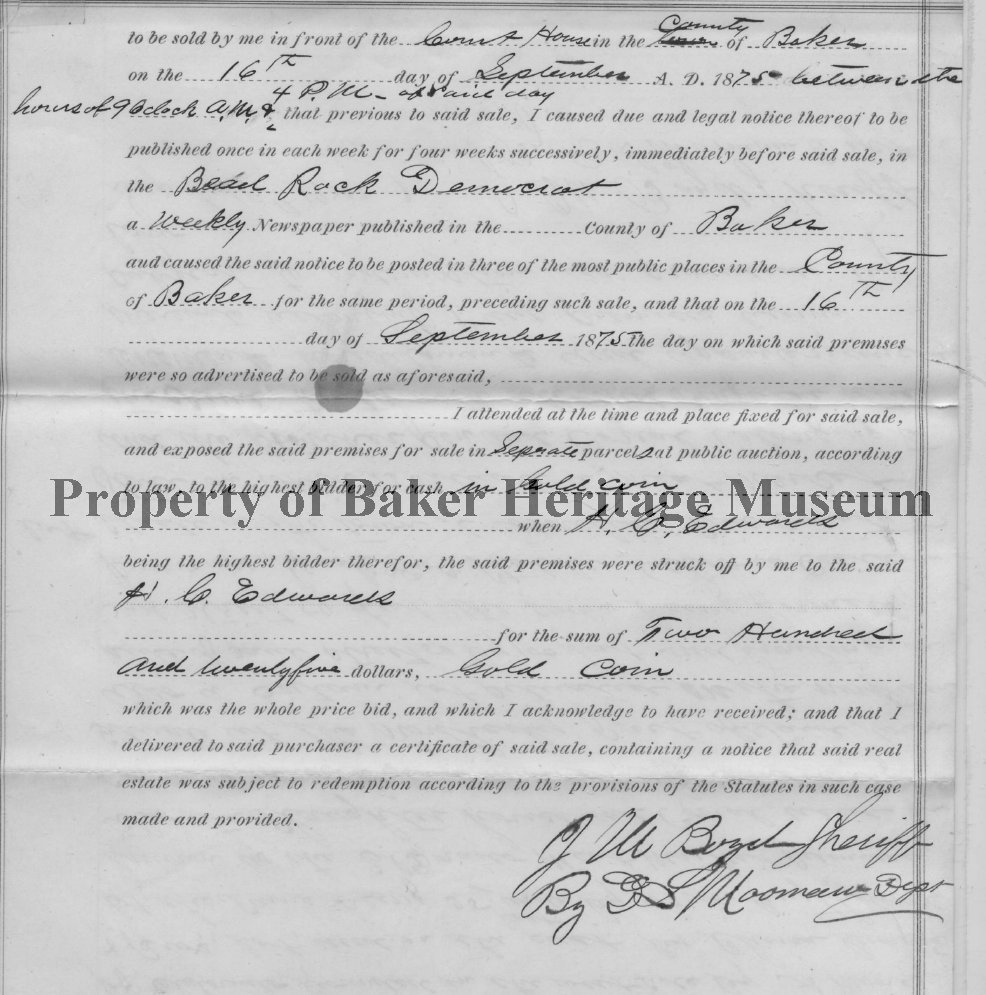 to be sold by me in front of the Court House in the County town of Baker
on the 16th day of September A. D. 1875 between the
hours of 9 Oclock A.M. & 4 P.M. of said day that previous to said sale, I caused due and legal notice thereof to be
published once in each week for four weeks successively, immediately before said sale, in
the Bead Rock Democrat
a Weekly Newspaper published in the County of Baker
and caused the said notice to be posted in three of the most public places in the County
of Baker for the same period, preceding such sale, and that on the 16th
day of September 1875 the day on which said premises
were so advertised to be sold as aforesaid,
I attended at the time and place fixed for said sale,
and exposed the said premises for sale in Seprate parcels at public auction, according
to law, to the highest bidder for cash in Gold coin
Property of Baker Heritage Museum
when H. C. Edwards
being the highest bidder therefor, the said premises were struck off by me to the said
H. C. Edwards
for the sum of Two Hundred
and twentyfive dollars, Gold Coin
which was the whole price bid, and which I acknowledge to have received; and that I
delivered to said purchaser a certificate of said sale, containing a notice that said real
estate was subject to redemption according to the provisions of the Statutes in such case
made and provided.
J M Boyd Sheriff
By Dept